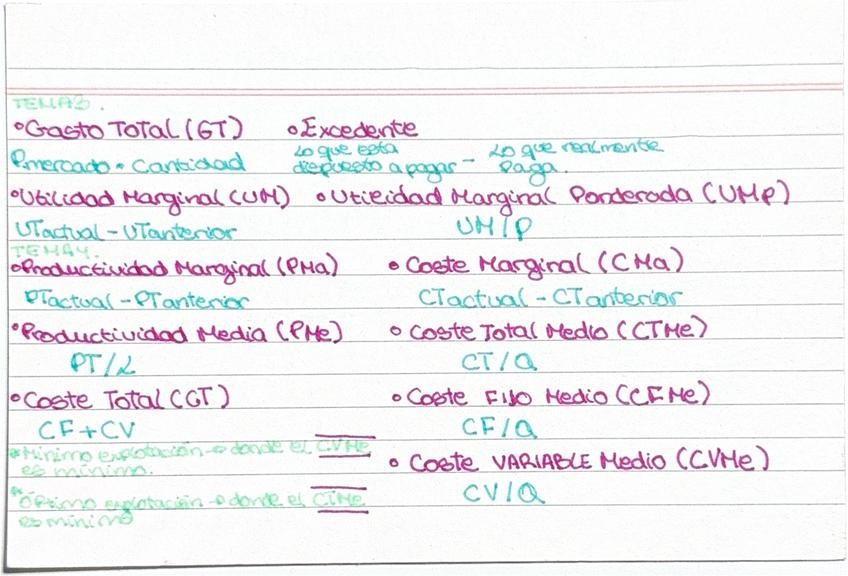 TEMA3.
°Gasto Total (GT) °Excedente
Pmercado · Cantidad Lo que esta dispuesto a pagar - Lo que realmente Paga.
°Utilidad Marginal (UM) °Utilidad Marginal Ponderada (UMP)
UTactual - UTanterior UM/P
TEMA4.
°Productividad Marginal (PMa) °Coste Marginal (CMa)
PTactual - PTanterior CTactual - CTanterior
°Productividad Media (PMe) °Coste Total Medio (CTMe)
PT/L CT/Q
°Coste Total (CT) °Coste Fijo Medio (CFMe)
CF+CV CF/Q
*Mínimo explotación → donde el CVMe
es mínimo.
°Coste VARIABLE Medio (CVMe)
*Óptimo explotación → donde el CTMe
es mínimo
CV/Q